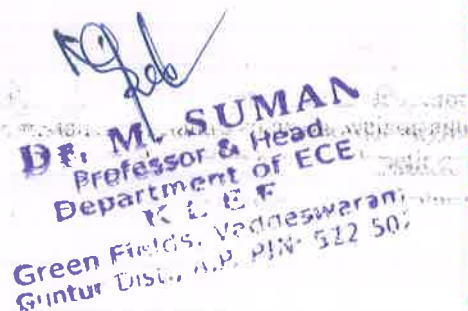 Dr. M. SUMAN
Professor & Head
Department of ECE
K L E F
Green Fields, Vaddeswaram,
Guntur Dist., A.P. PIN: 522 502